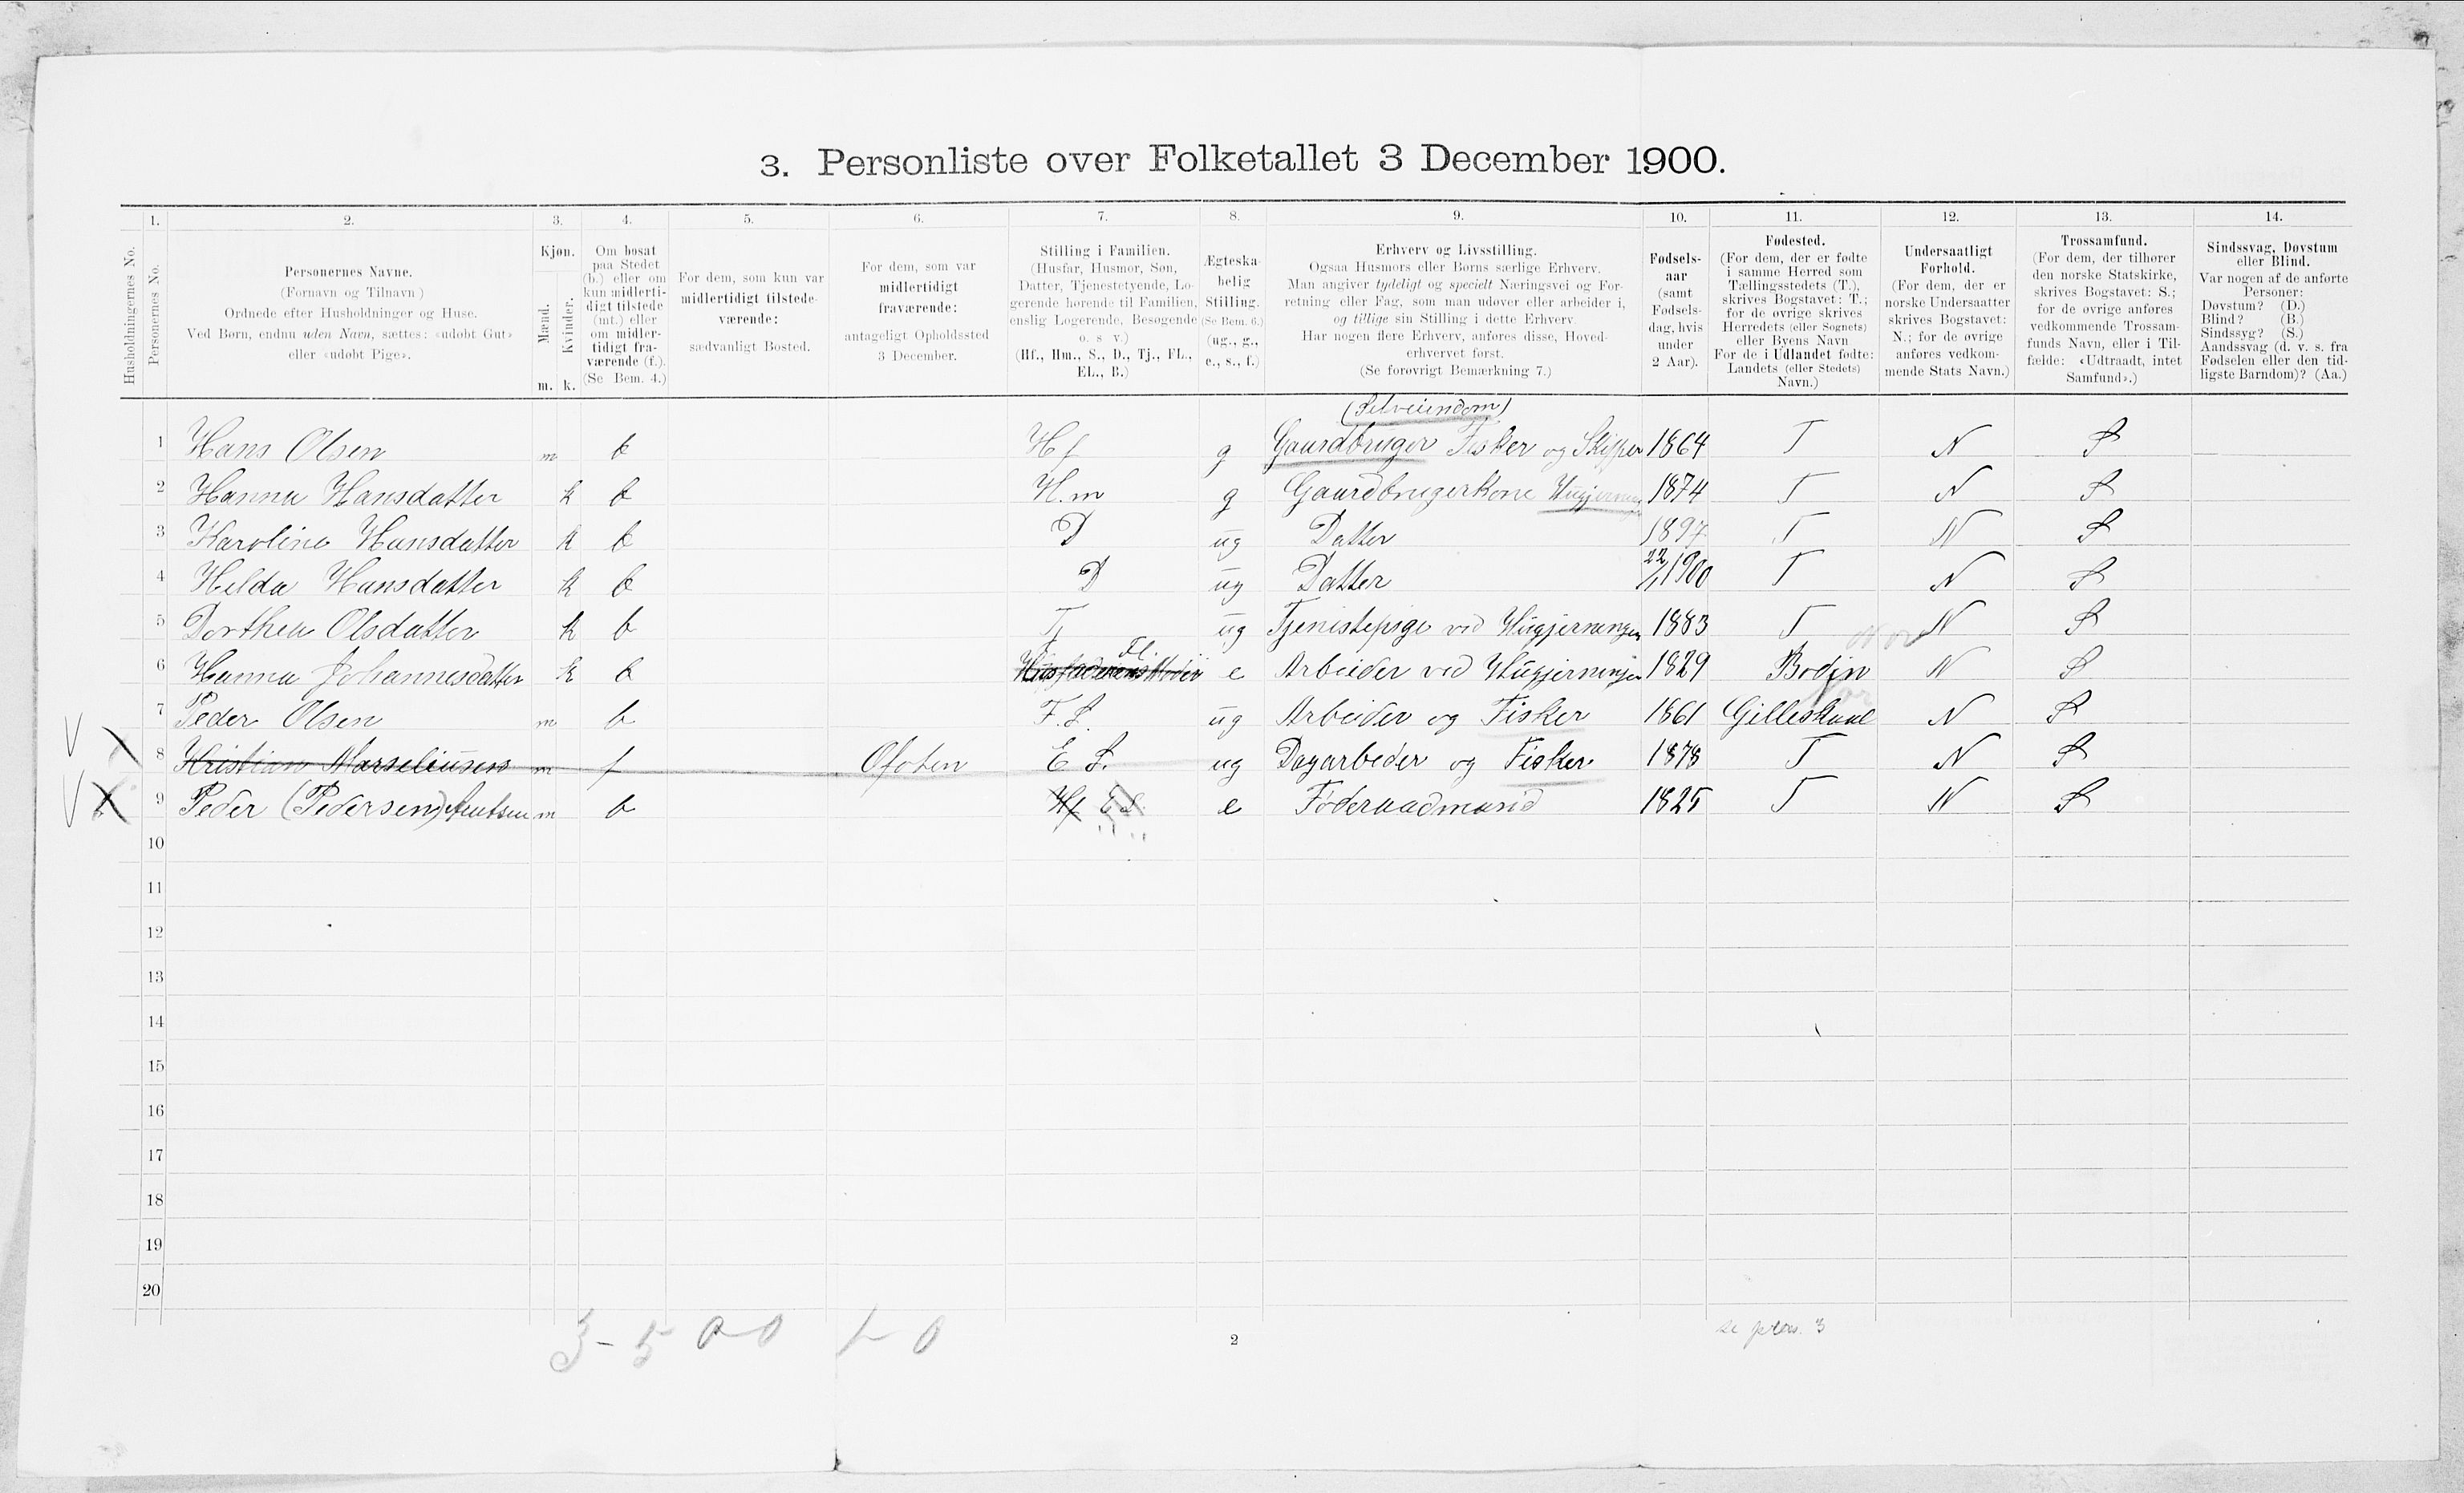 3. Personliste over Folketallet 3 December 1900.
1. 2. 3. 4. 5. 6. 7. 8. 9. 10. 11. 12. 13. 14.
Husholdningernes No.
Personernes No.
Personernes Navne.
(Fornavn og Tilnavn)
Ordnede efter Husholdninger og Huse.
Ved Børn, endnu uden Navn, sættes: «udøbt Gut»
eller «udøbt Pige».
Kjøn.
Mænd.
Kvinder.
m. k.
Om bosat
paa Stedet
(b.) eller om
kun midlerti-
digt tilstede
(mt.) eller
om midler-
tidigt fra-
værende (f.).
(Se Bem. 4.)
For dem, som kun var
midlertidigt tilstede-
værende:
sædvanligt Bosted.
For dem, som var
midlertidigt
fraværende:
antageligt Opholdssted
3 December.
Stilling i Familien.
(Husfar, Husmor, Søn,
Datter, Tjenestetyende, Lo-
gerende hørende til Familien,
enslig Logerende, Besøgende
o. s v.)
(Hf., Hm., S., D., Tj., FL.,
EL., B.)
Ægteska-
belig
Stilling.
(Se Bem. 6.)
(ug., g.,
e., s., f.)
Erhverv og Livsstilling.
Ogsaa Husmors eller Børns særlige Erhverv.
Man angiver tydeligt og specielt Næringsvei og For-
retning eller Fag, som man udøver eller arbeider i,
og tillige sin Stilling i dette Erhverv
Har nogen flere Erhverv, anføres disse, Hoved-
erhvervet først.
(Se forøvrigt Bemærkning 7.)
Fødsels-
aar
(samt
Fødsels-
dag, hvis
under
2 Aar).
Fødested.
(For dem, der er fødte
i samme Herred som
Tællingsstedets (T.),
skrives Bogstavet: T.;
for de øvrige skrives
Herredets (eller Sognets)
eller Byens Navn
For de i Udlandet fødte:
Landets (eller Stedets)
Navn.)
Undersaatligt
Forhold.
(For dem, der er
norske Undersaatter
skrives Bogstavet:
N.; for de øvrige
anføres vedkom-
mende Stats Navn.)
Trossamfund.
(For dem, der tilhører
den norske Statskirke,
skrives Bogstavet: S.;
for de øvrige anføres
vedkommende Trossam-
funds Navn, eller i Til-
fælde: «Udtraadt, intet
Samfund».)
Sindssvag, Døvstum
eller Blind.
Var nogen af de anførte
Personer:
Døvstum? (D.)
Blind? (B.)
Sindssyg? (S.)
Aandssvag (d. v. s. fra
Fødselen eller den tid-
ligste Barndom)? (Aa.)
(Selveiendom)
1 Hans Olsen m b Hf g Gaardbruger Fisker og Skipper 1864 T N S
2 Hanna Hansdatter k b H.m g Gaardbrugerkone Husgjerning 1874 T N S
3 Karoline Hansdatter k b D ug Datter 1897 T N S
4 Helda Hansdatter k b D ug Datter 22/11 1900 T N S
5 Dorthea Olsdatter k b Tj ug Tjenistepige ved Husgjerningen 1883 T N S
Fl.
6 Hanna Johannesdatter k b Husfaderens Moder e Arbeider ved Husgjerningen 1829 Bodin N S
7 Peder Olsen m b F.L ug Arbeider og Fisker 1861 Gilleskaal N S
8 Kristian Marseliusen m f Ofoten E L. ug Dagarbeder og Fisker 1878 T N S
9 Peder (Pedersen) m b Hf E L. e Föderaadmand 1825 T N S
10
11
12
13
14
15
16
17
18
19
20
3 - 5 0 - 0 1 - 0
2
se pers. 3